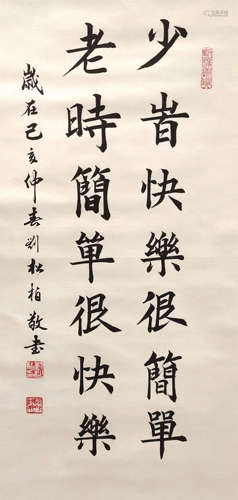 少旹快樂很簡單
老時簡単很快樂
歲在己亥仲春劉松柏敬書